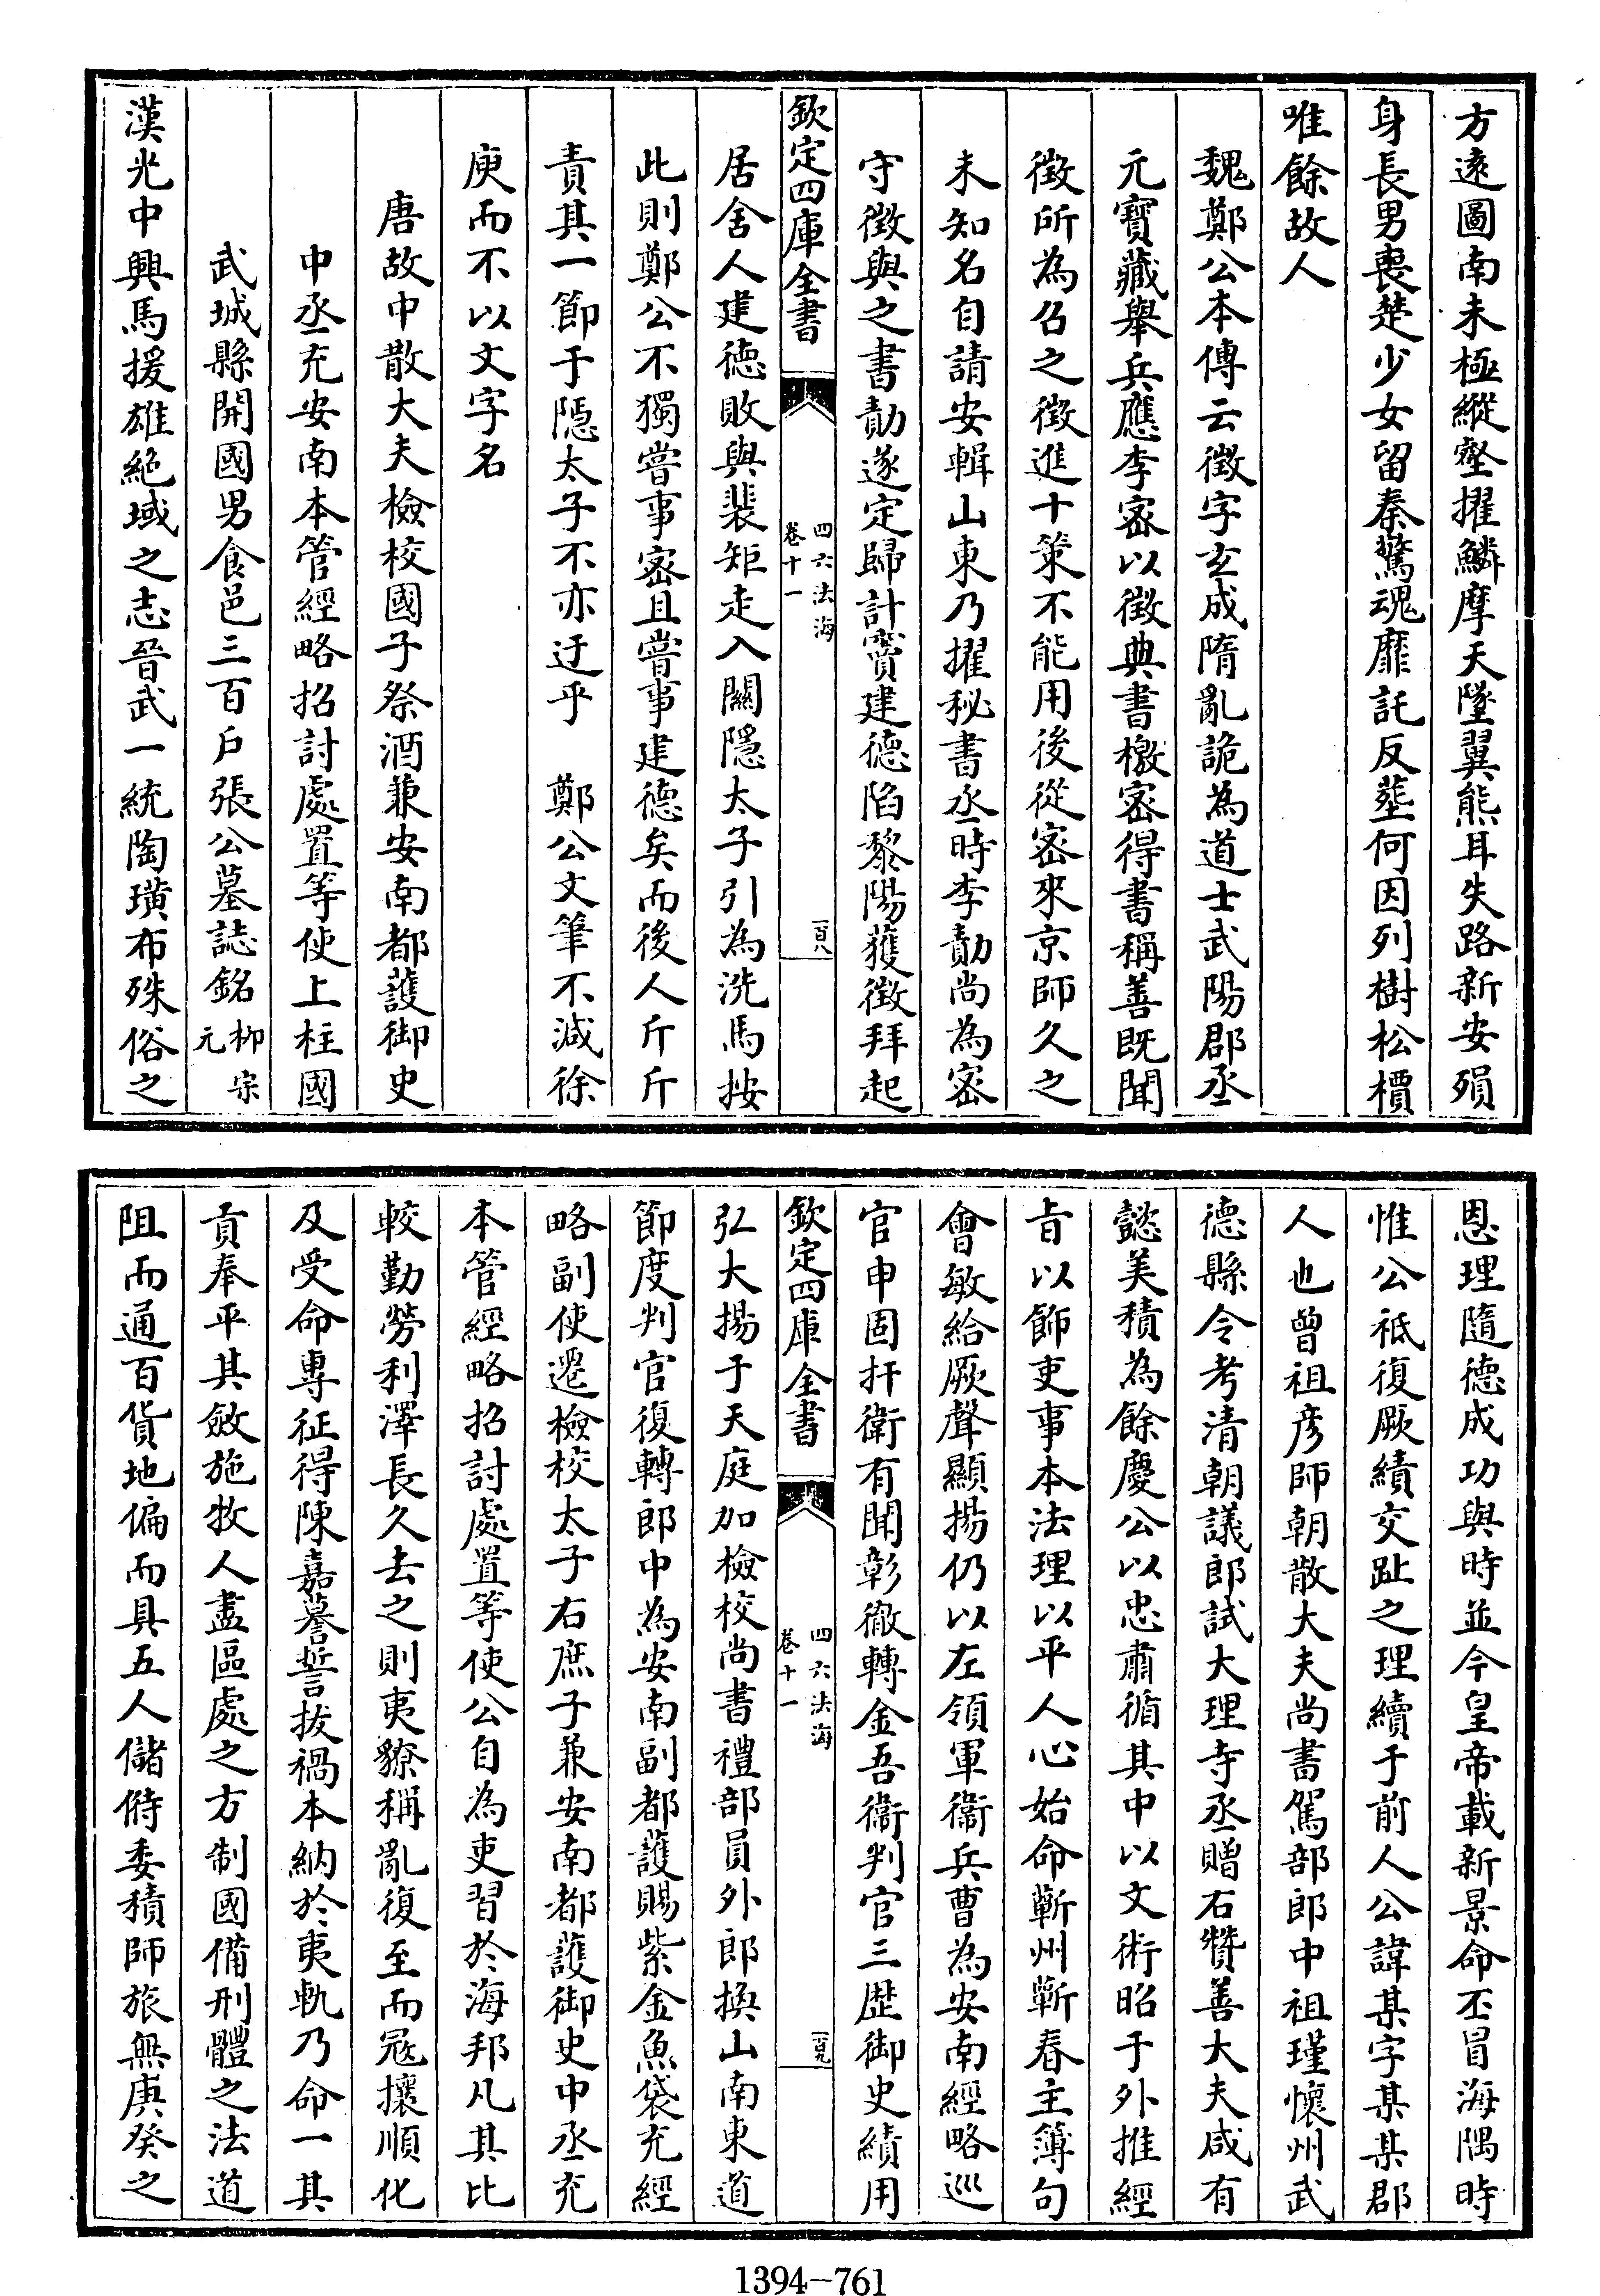 方遠圖南未極縱壑擢鱗摩天墜翼熊耳失路新安殞
身長男喪楚少女留秦驚魂靡託反葬何因列樹松檟
唯餘故人
魏鄭公本傳云徵字玄成隋亂詭為道士武陽郡丞
元寶藏舉兵應李密以徵典書檄密得書稱善既聞
徵所為召之徵進十策不能用後從密來京師久之
未知名自請安輯山東乃擢秘書丞時李勣尚為密
守徵與之書勣遂定歸計竇建德陷黎陽獲徵拜起
欽定四庫全書
四六法海
卷十一
一百八
居舍人建德敗與裴矩走入關隱太子引為洗馬按
此則鄭公不獨嘗事密且嘗事建德矣而後人斤斤
責其一節于隱太子不亦迂乎 鄭公文筆不減徐
庾而不以文字名
唐故中散大夫檢校國子祭酒兼安南都護御史
中丞充安南本管經略招討處置等使上柱國
武城縣開國男食邑三百戶張公墓誌銘 柳宗
元
漢光中興馬援雄絕域之志晉武一統陶璜布殊俗之
恩理隨德成功與時並今皇帝載新景命丕冒海隅時
惟公祇復厥績交趾之理續于前人公諱某字某某郡
人也曾祖彥師朝散大夫尚書駕部郎中祖瑾懷州武
德縣令考清朝議郎試大理寺丞贈右贊善大夫咸有
懿美積為餘慶公以忠肅循其中以文術昭于外推經
旨以飾吏事本法理以平人心始命蘄州蘄春主簿句
會敏給厥聲顯揚仍以左領軍衞兵曹為安南經略巡
官申固扞衛有聞彰徹轉金吾衞判官三歷御史績用
欽定四庫全書
四六法海
卷十一
一百九
弘大揚于天庭加檢校尚書禮部員外郎換山南東道
節度判官復轉郎中為安南副都護賜紫金魚袋充經
略副使遷檢校太子右庶子兼安南都護御史中丞充
本管經略招討處置等使公自為吏習於海邦凡其比
較勤勞利澤長久去之則夷獠稱亂復至而冦攘順化
及受命專征得陳嘉謩誓拔禍本納於夷軌乃命一其
貢奉平其斂施牧人盡區處之方制國備刑體之法道
阻而通百貨地偏而具五人儲偫委積師旅無庚癸之
1394—761